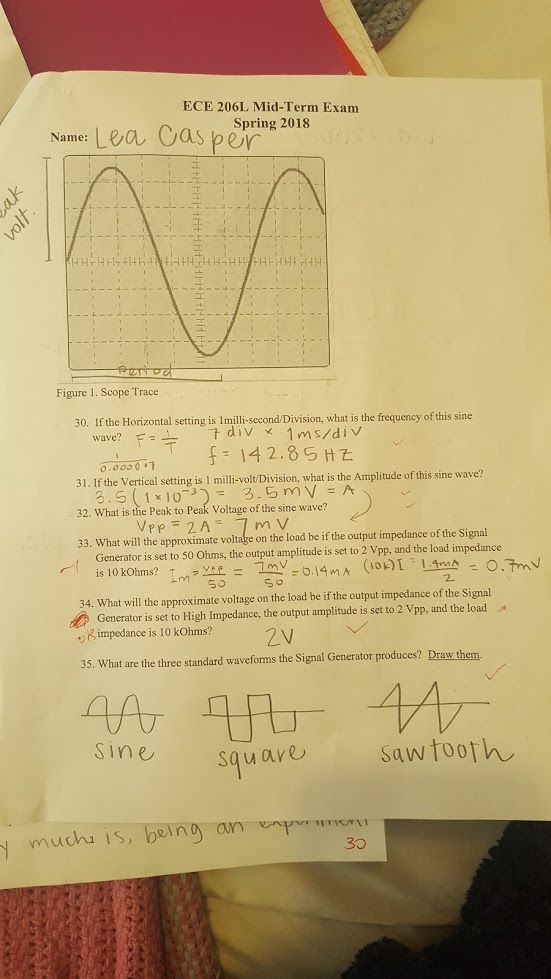 ECE 206L Mid-Term Exam
Spring 2018
Name: Lea Casper
eak
volt.
Period
Figure 1. Scope Trace
30. If the Horizontal setting is 1milli-second/Division, what is the frequency of this sine
wave? F = 1/T 7 div × 1ms/div
f = 142.85 HZ
31. If the Vertical setting is 1 milli-volt/Division, what is the Amplitude of this sine wave?
3.5(1×10⁻³) = 3.5mV = A
32. What is the Peak to Peak Voltage of the sine wave?
Vpp = 2A = 7mV
33. What will the approximate voltage on the load be if the output impedance of the Signal
Generator is set to 50 Ohms, the output amplitude is set to 2 Vpp, and the load impedance
-1 is 10 kOhms? Im = Vpp/50 = 7mV/50 = 0.14mA (10k)I = 1.4mA/2 = 0.7mV
34. What will the approximate voltage on the load be if the output impedance of the Signal
Generator is set to High Impedance, the output amplitude is set to 2 Vpp, and the load
impedance is 10 kOhms? 2V
35. What are the three standard waveforms the Signal Generator produces? Draw them.
sine square sawtooth
y much is, being an experiment
30